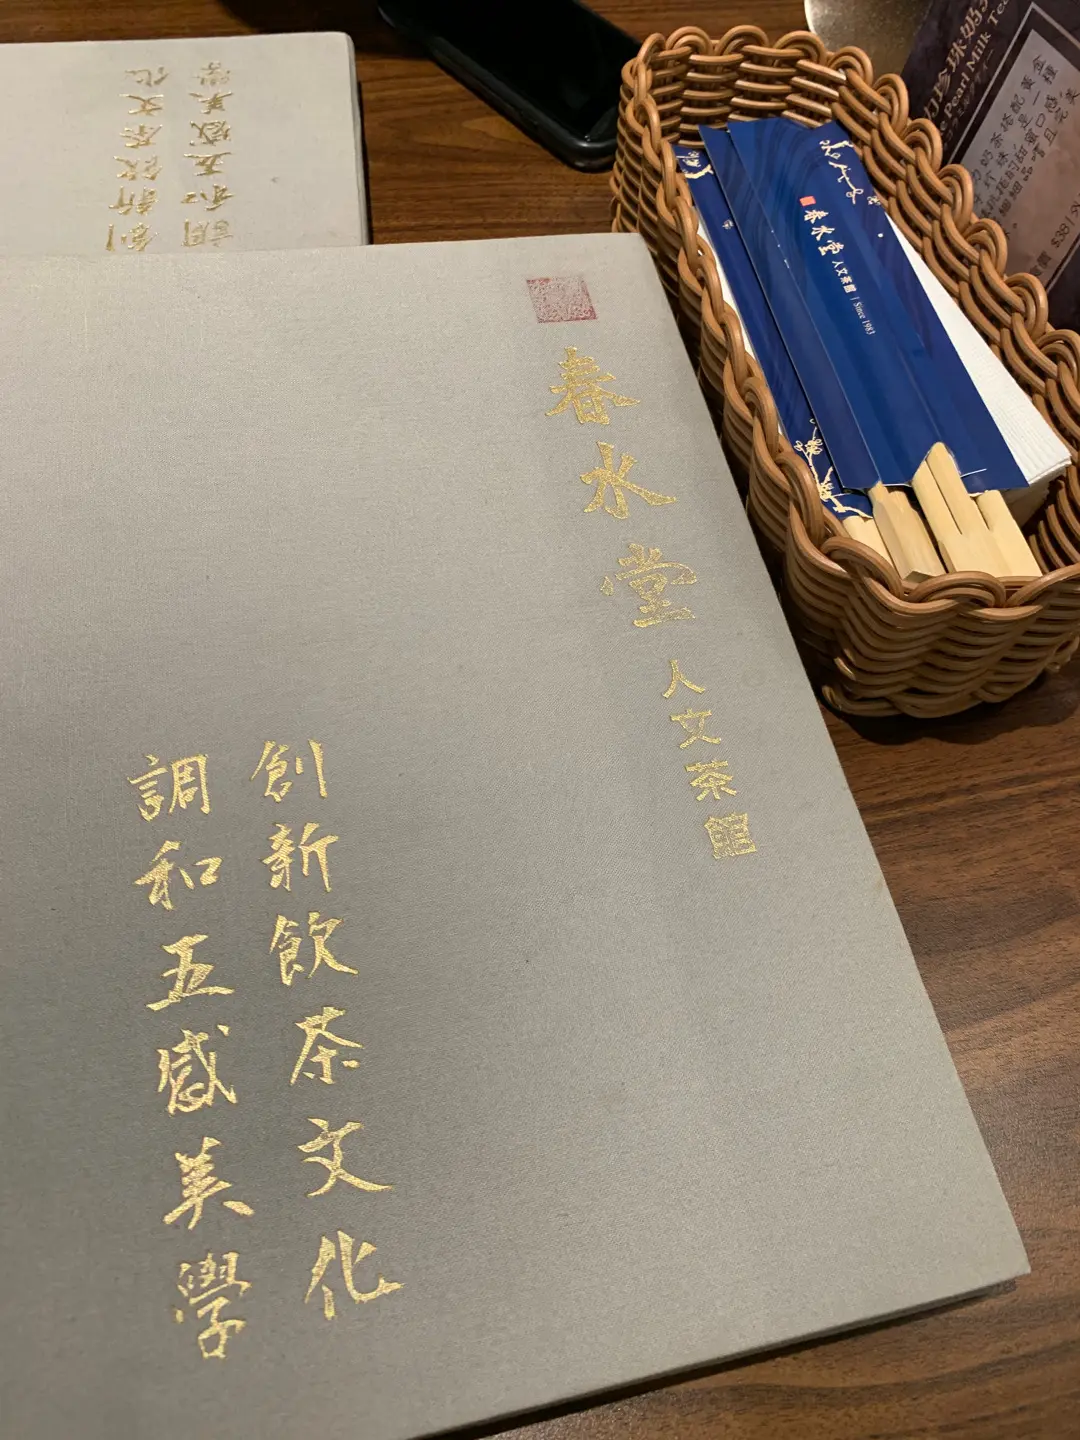 春水堂
人文茶館
創新飲茶文化
調和五感美學
創新飲茶文化
調和五感美學
春水堂 人文茶館 | Since 1983
珍珠奶
Pearl Milk Tea
$38